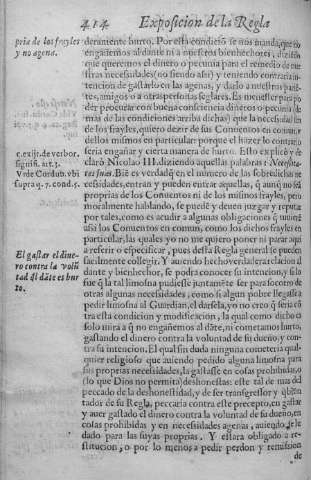 414 Exposicion de la Regla
pria de los frayles
y no agena.
c. exijt. de verbor.
signifi. art. 3.
Vide Cordub. vbi
supra q. 7. cond. 5.
El gastar el dine-
ro contra la volũ
tad dl dãte es hur
to.
deramente hurto. Por esta condiciõ se nos manda, que no
engañemos al dante ni a nuestros bienhechores, diziendo
que queremos el dinero o pecunia para el remedio de nue
stras necessidades (no siendo assi) y teniendo contraria in-
tencion de gastarlo en las agenas, y darlo a nuestros parié-
tes, amigos o a otras personas seglares. Es necessario para po
der procurar con buena consciencia dineros o pecunia (de
mas de las condiciones arriba dichas) que la necessidad sea
de los frayles, quiero dezir de sus Conuentos en comun, o
dellos mismos en particular porque el hazer lo contrario
seria engañar y cierta manera de hurto. Esto explicò y de
clarò Nicolao III. diziendo aquellas palabras: Necessita-
tes suas. Biẽ es verdad q̃ en el numero de las sobredichas ne
cessidades, entran y pueden entrar aquellas, q̃ aunq̃ no seã
proprias de los Conuentos ni de los mismos frayles, pero
moralmente hablando, se puedẽ y deuen juzgar y reputar
por tales, como es acudir a algunas obligaciones q̃ tienen
assi los Conuentos en comun, como los dichos frayles en
particular, las quales yo no me quiero poner ni parar aqui
a referir o especificar, pues desta Regla general se pueden
facilmente colegir. Y auiendo hecho verdadera relacion al
dante y bienhechor, se podra conocer su intencion, y si lo
fue q̃ la tal limosna pudiesse juntamẽte ser para socorro de
otras algunas necessidades, como si algun pobre llegasse a
pedir limosna al Guardian, el darsela, yo no creo q̃ seria cõ
tra esta condicion y modificacion, la qual como dicho es
solo mira a q̃ no engañemos al dãte, ni cometamos hurto,
gastando el dinero contra la voluntad de su dueño, y con-
tra su intencion. El qual sin duda ninguna cometeria qual-
quier religioso que auiendo pedido alguna limosna para
sus proprias necessidades, la gastasse en cosas prohibidas, o
(lo que Dios no permita) deshonestas: este tal de mas del
peccado de la deshonestidad, y de ser transgressor y quebrã
tador de su Regla, peccaria contra este precepto, en gastar
y auer gastado el dinero contra la voluntad de su dueño, en
cosas prohibidas y en necessidades agenas, auiendosele
dado para las suyas proprias. Y estara obligado a re-
stitucion, o por lo menos a pedir perdon y remission
de